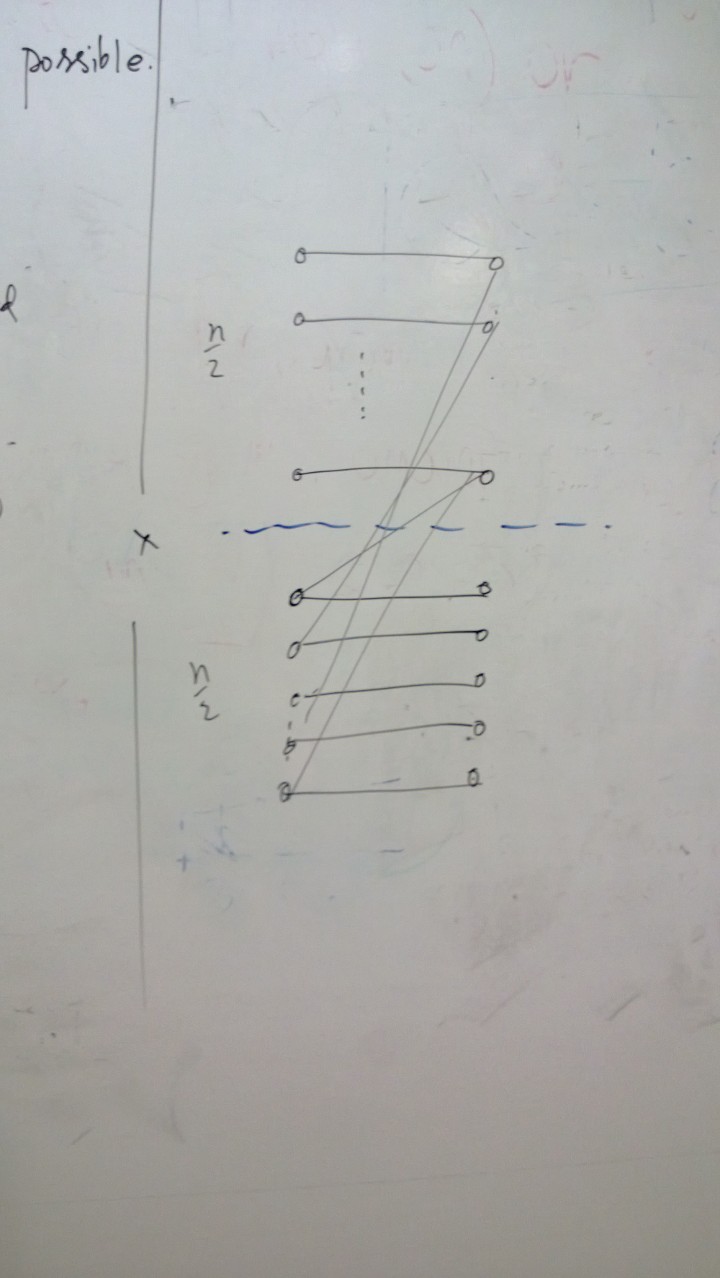 possible.
d
n
2
x
n
2